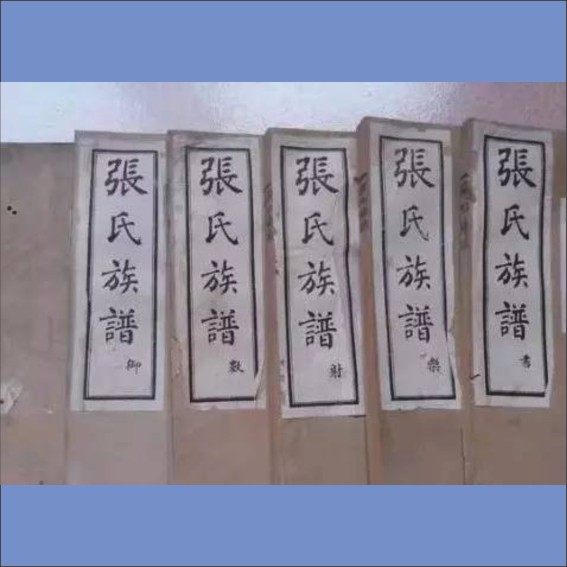 張氏族譜 御
張氏族譜 數
張氏族譜 射
張氏族譜 樂
張氏族譜 書